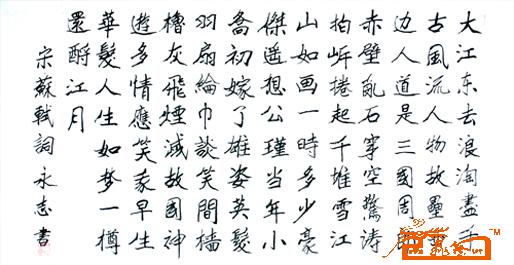 大江东去浪淘盡千
古風流人物故壘西
边人道是三國周郎
赤壁亂石穿空驚涛
拍岸捲起千堆雪江
山如画一時多少豪
傑遥想公瑾当年小
喬初嫁了雄姿英髮
羽扇綸巾談笑間檣
櫓灰飛煙滅故國神
遊多情應笑我早生
華髮人生如梦一樽
還酹江月
宋蘇軾詞永志書
TM